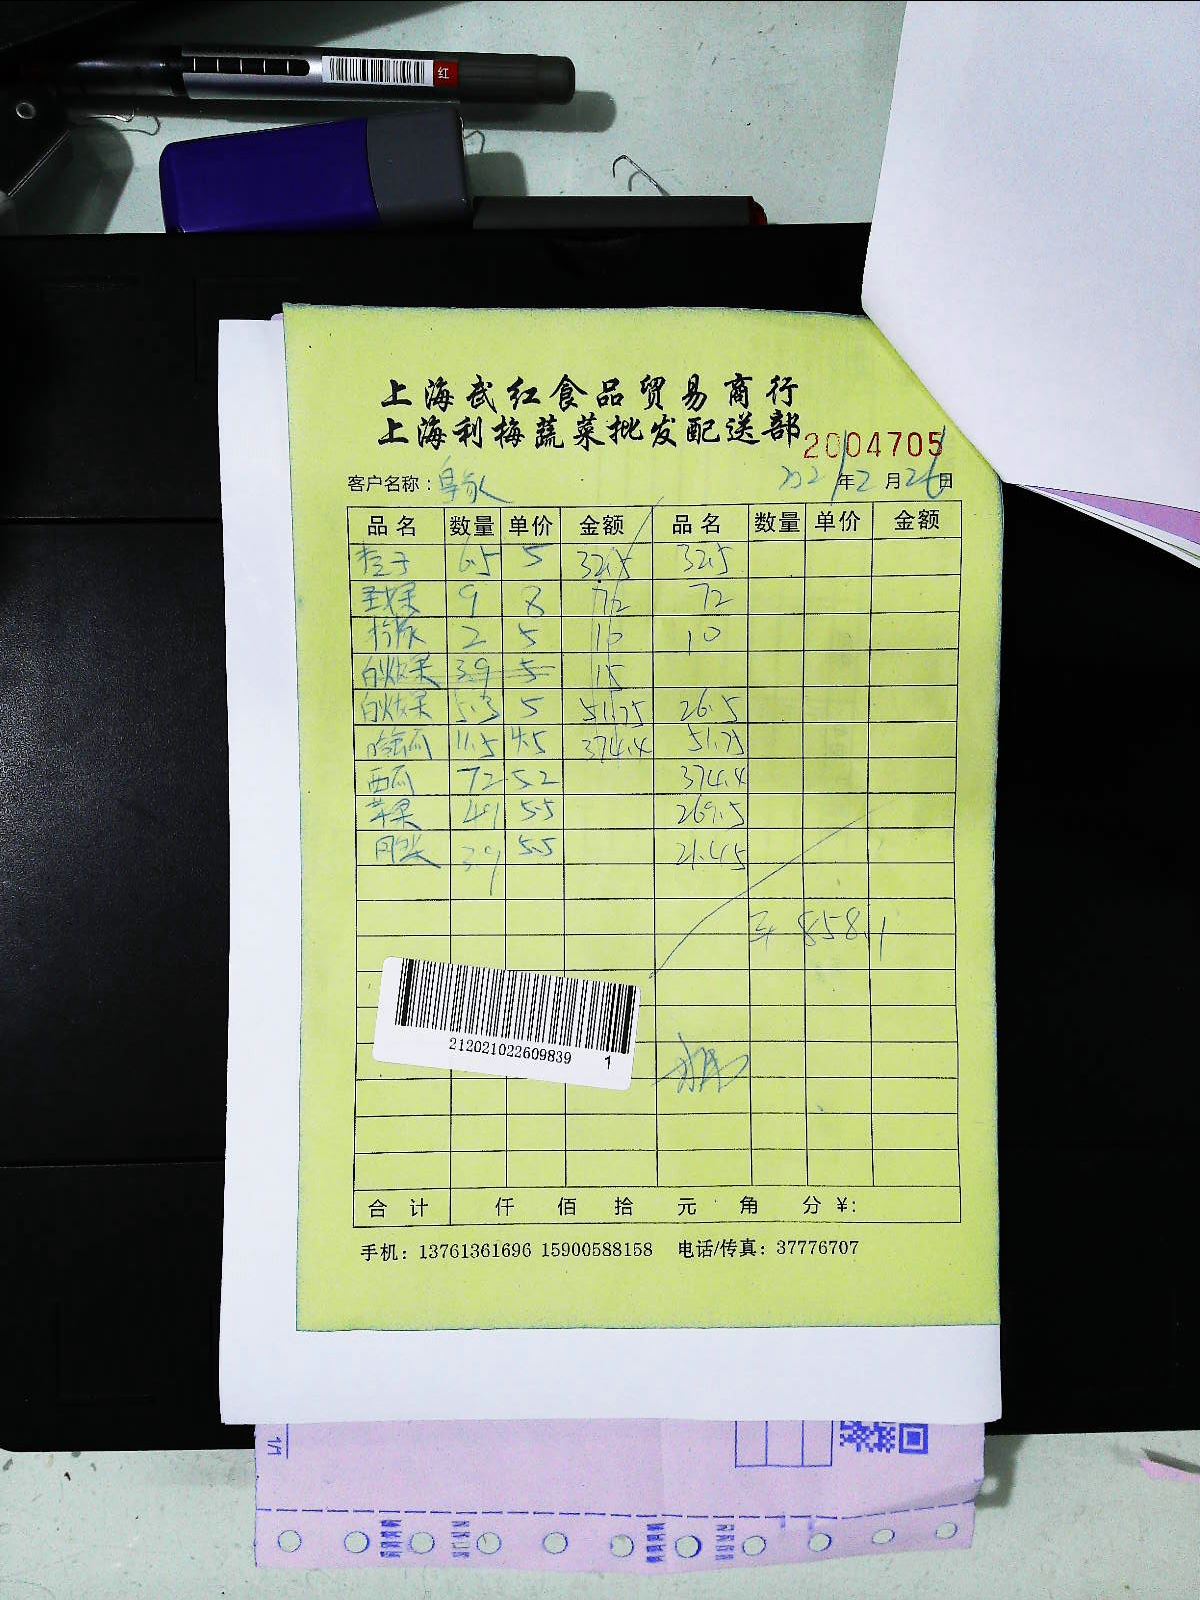 红
上海武红食品贸易商行
上海利梅蔬菜批发配送部
2004705
客户名称：
2021年2月26日
品名 数量 单价 金额 品名 数量 单价 金额
6.5 5 32.5 32.5
9 8 72 72
2 5 10 10
3.9 5 15
5.3 5 51.75 26.5
11.5 4.5 374.4 51.75
西瓜 72 5.2 374.4
苹果 49 5.5 269.5
3.9 5.5 21.45
858.1
212021022609839 1
合计 仟 佰 拾 元 角 分 ¥:
手机：13761361696 15900588158 电话/传真：37776707
1/1